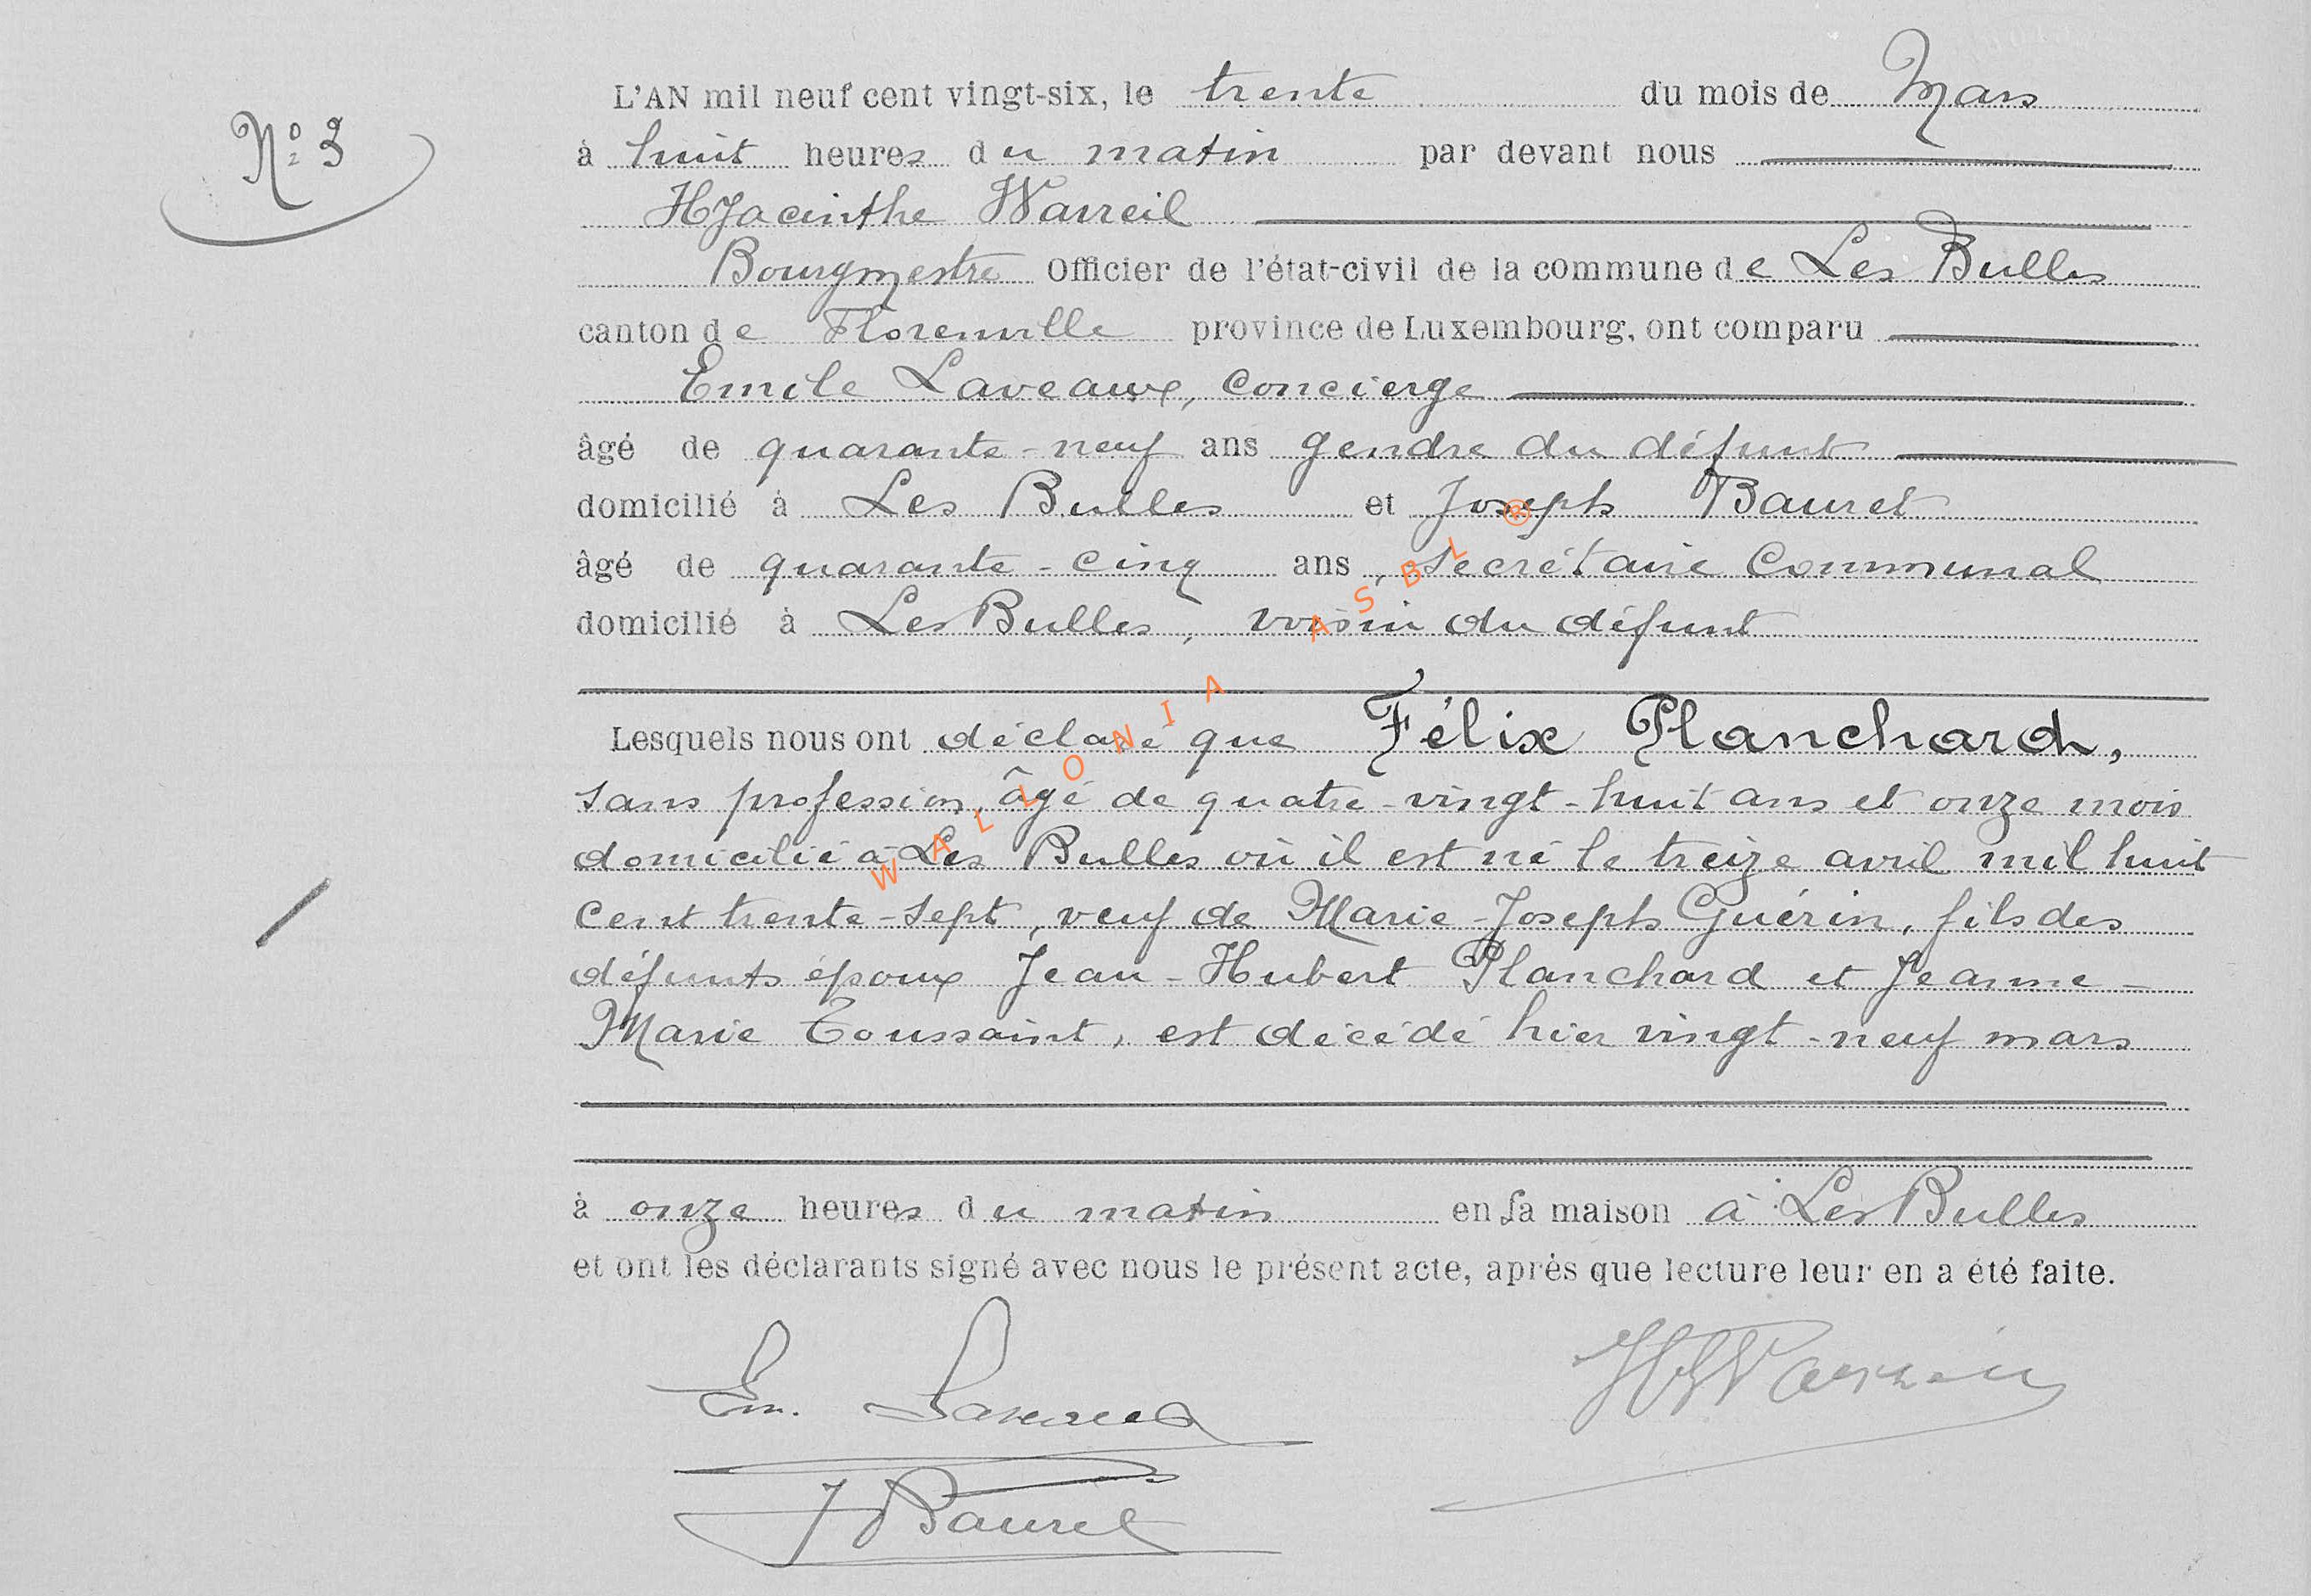 N° 3
L'AN mil neuf cent vingt-six, le trente du mois de Mars
à huit heures du matin par devant nous
HJacinthe Warreil
Bourgmestre Officier de l'état-civil de la commune de Les Bulles
canton de Florenville province de Luxembourg, ont comparu
Emile Laveaux, Concierge
âgé de quarante-neuf ans gendre du défunt
domicilié à Les Bulles et Joseph Bauret
âgé de quarante-cinq ans, Secrétaire Communal
domicilié à Les Bulles, voisin du défunt
Lesquels nous ont déclaré que Félix Planchard,
sans profession, âgé de quatre-vingt-huit ans et onze mois
domicilié à Les Bulles où il est né le treize avril mil huit
cent trente-sept, veuf de Marie-Joseph Guérin, fils des
défunts époux Jean-Hubert Planchard et Jeanne-
Marie Toussaint, est décédé hier vingt-neuf mars
à onze heures du matin en sa maison à Les Bulles
et ont les déclarants signé avec nous le présent acte, après que lecture leur en a été faite.
Em.
J Bauret
WALLONIA ASBL ®